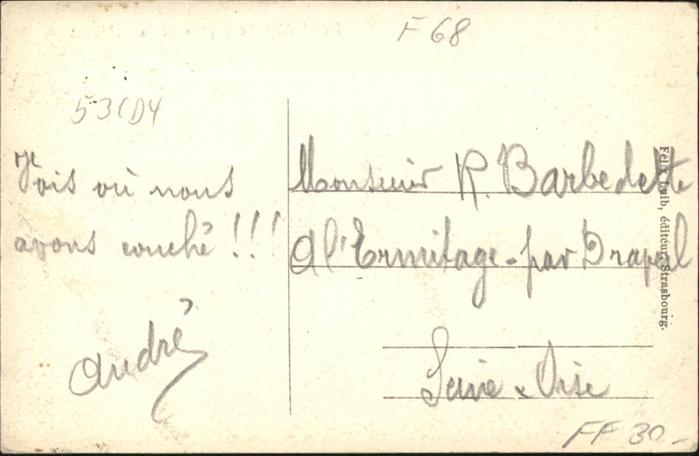 F 68
53CD4
Vois où nous
avons couché !!!
André
Monsieur R. Barbedette
à l'Ermitage - par Draveil
Seine & Oise
Félix Luib, éditeur, Strasbourg.
FF 30 -